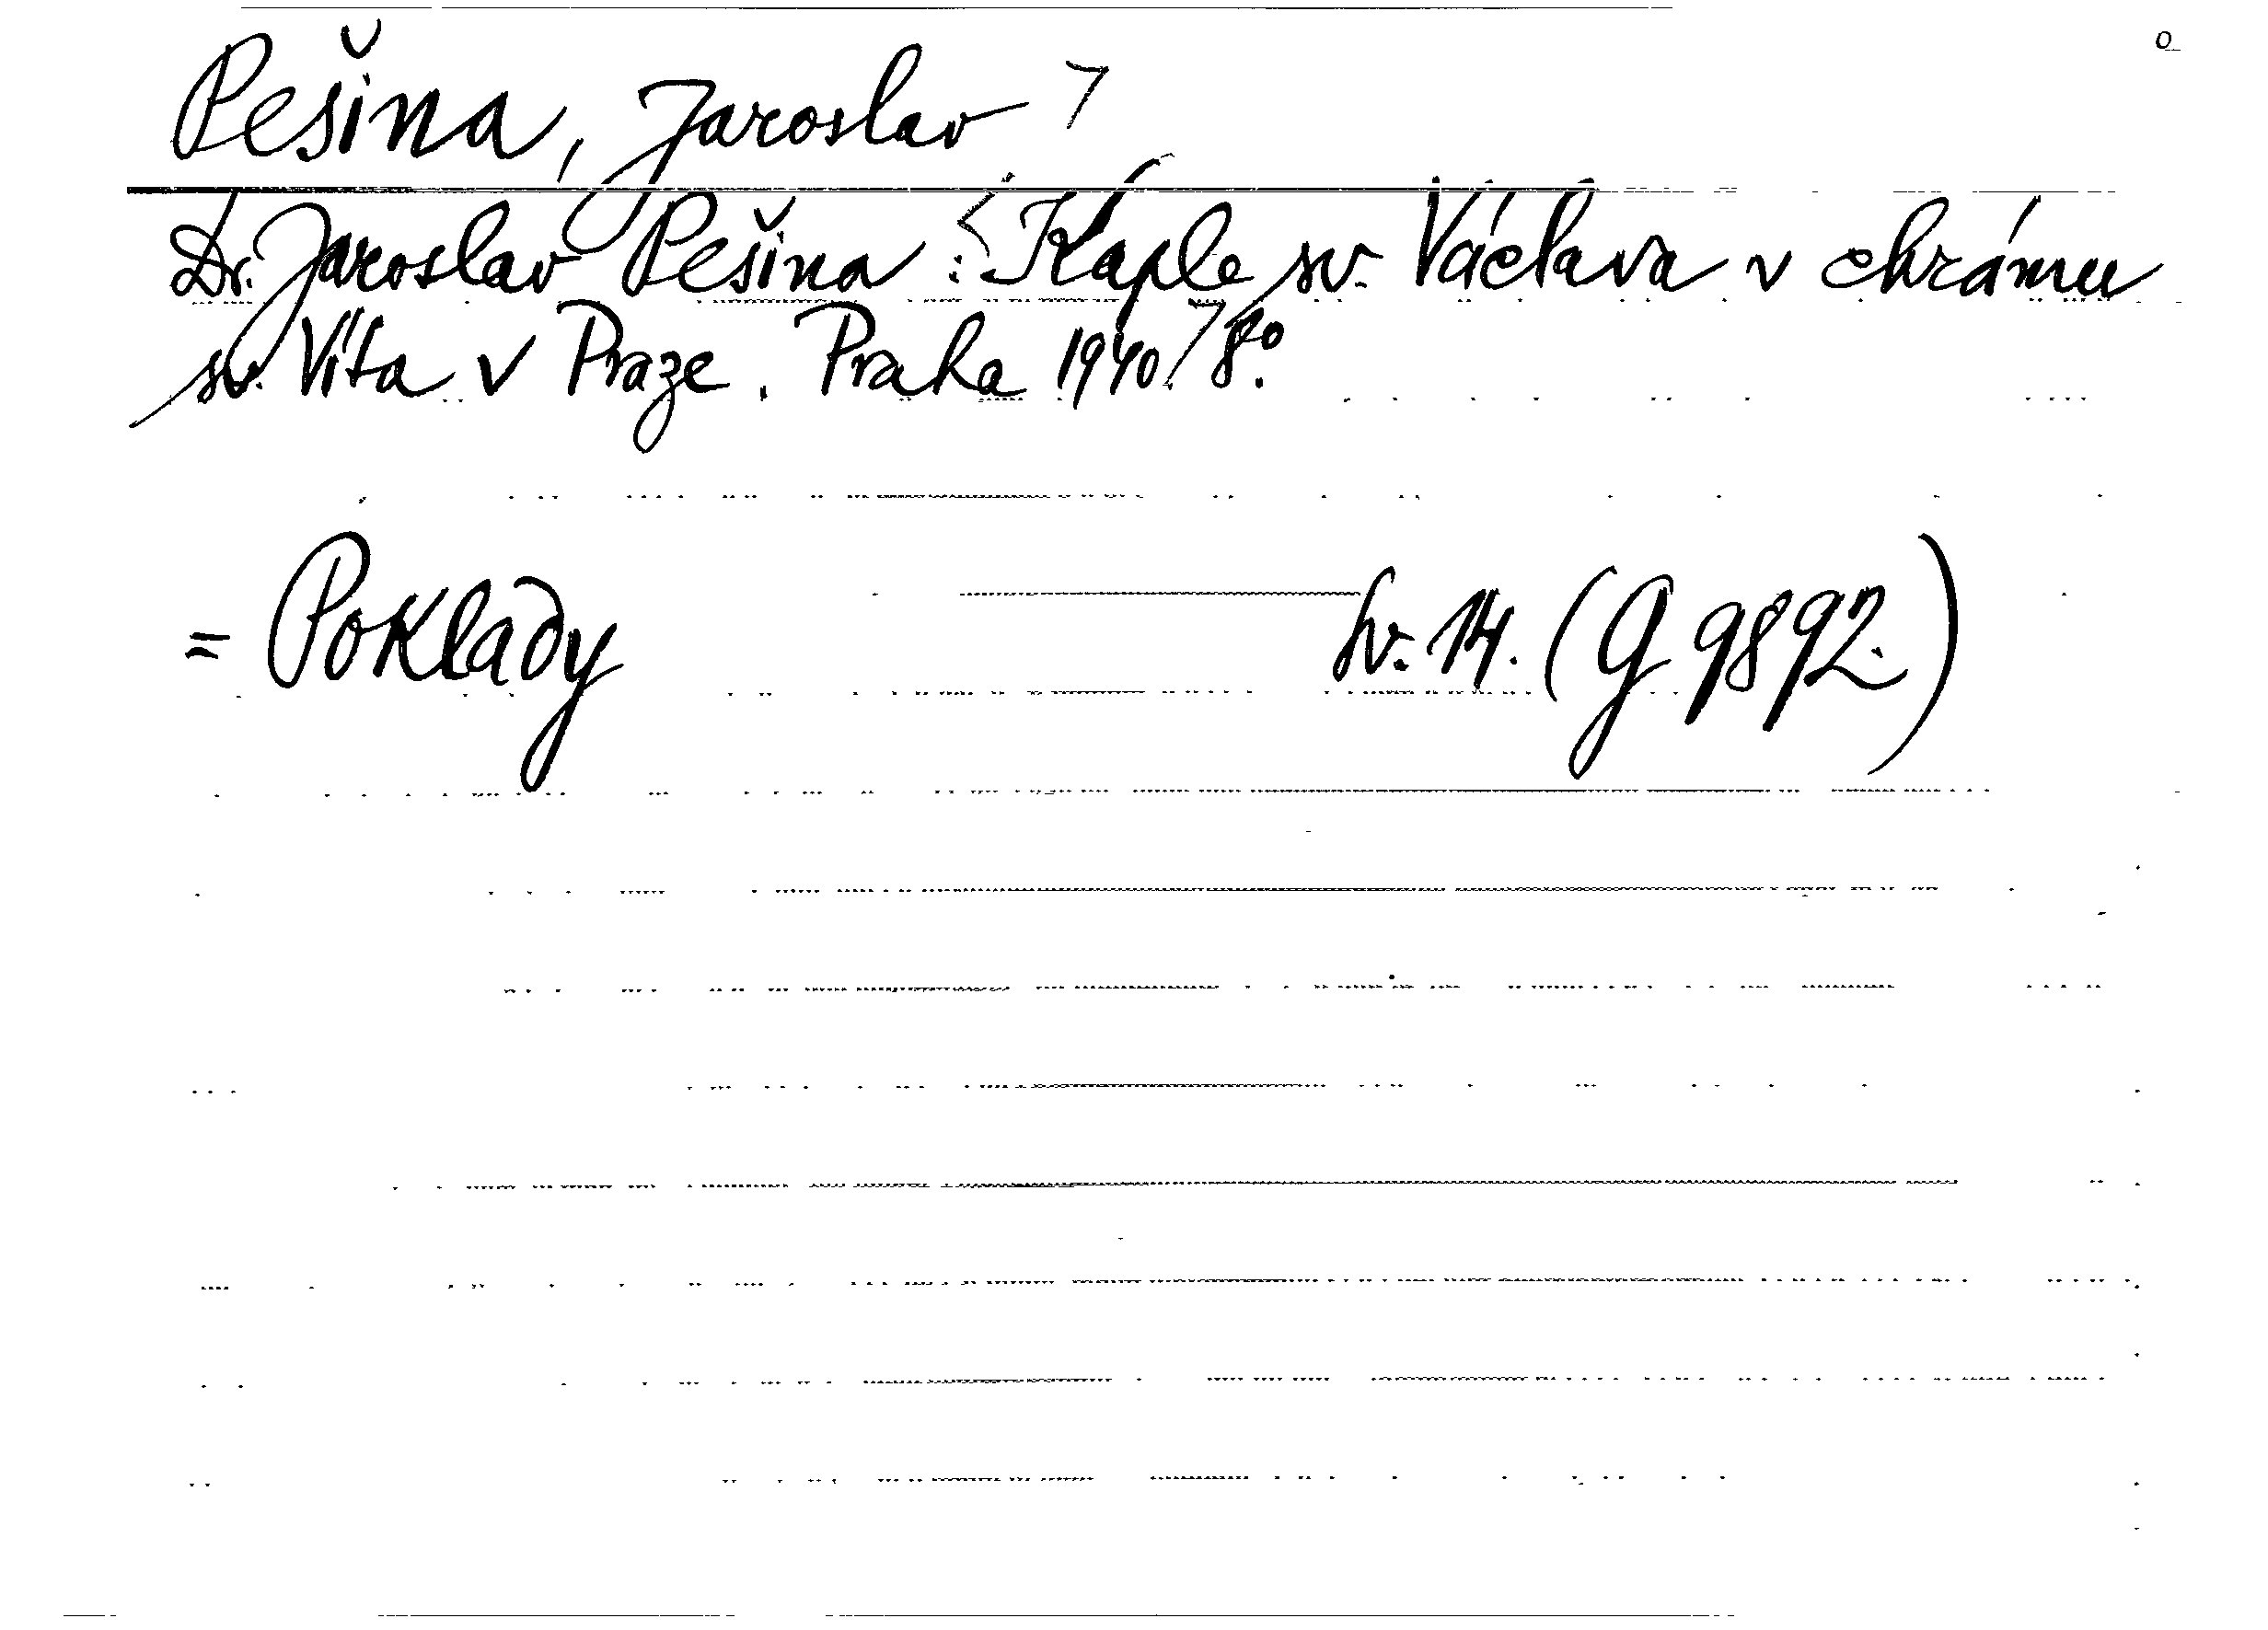 Pešina, Jaroslav
Dr. Jaroslav Pešina : Kaple sv. Václava v chrámu
sv. Víta v Praze. Praha 1940. 8°.
= Poklady sv. 14. (G 9892.)